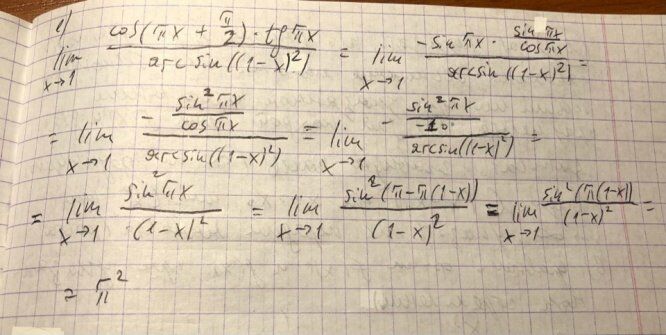 e) lim x→1 cos(πx + π/2) · tg πx / arcsin((1-x)²) = lim x→1 -sin πx · sin πx/cos πx / arcsin((1-x)²) =
= lim x→1 - sin² πx/cos πx / arcsin((1-x)²) = lim x→1 - sin² πx/-1 / arcsin((1-x)²) =
= lim x→1 sin² πx / (1-x)² = lim x→1 sin²(π-π(1-x)) / (1-x)² = lim x→1 sin²(π(1-x)) / (1-x)² =
= π²